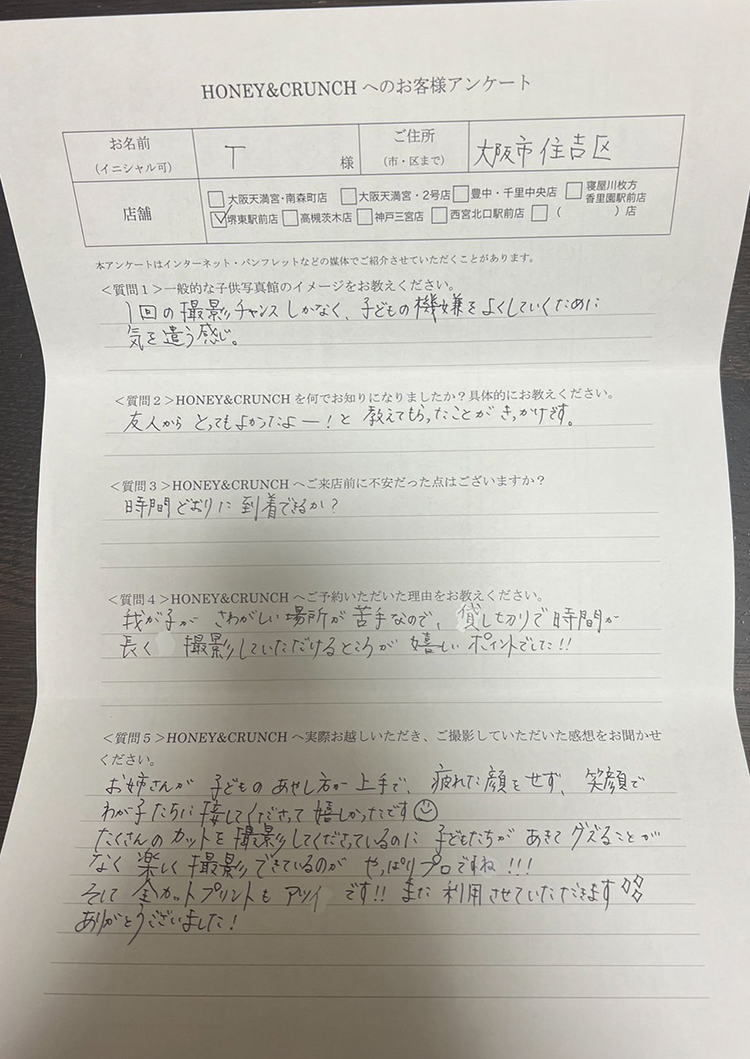 HONEY&CRUNCH へのお客様アンケート
お名前
(イニシャル可)
T
様
ご住所
(市・区まで)
大阪市住吉区
店舗
大阪天満宮・南森町店 大阪天満宮・2号店 豊中・千里中央店 寝屋川枚方香里園駅前店
堺東駅前店 高槻茨木店 神戸三宮店 西宮北口駅前店 ( )店
本アンケートはインターネット・パンフレットなどの媒体でご紹介させていただくことがあります。
<質問1>一般的な子供写真館のイメージをお教えください。
1回の撮影チャンスしかなく、子どもの機嫌をよくしていくために
気を遣う感じ。
<質問2>HONEY&CRUNCHを何でお知りになりましたか?具体的にお教えください。
友人から とってもよかったよー!と 教えてもらったことがきっかけです。
<質問3>HONEY&CRUNCHへご来店前に不安だった点はございますか?
時間どおりに到着できるか?
<質問4>HONEY&CRUNCHへご予約いただいた理由をお教えください。
我が子が さわがしい場所が苦手なので、貸し切りで時間が
長く 撮影していただけるところが 嬉しいポイントでした!!
<質問5>HONEY&CRUNCHへ実際お越しいただき、ご撮影していただいた感想をお聞かせ
ください。
お姉さんが 子どものあやし方が上手で、疲れた顔をせず、笑顔で
わが子たちに接してくださって嬉しかったです☺
たくさんのカットを撮影してくださっているのに 子どもたちが あきてグズることが
なく 楽しく撮影できているのが やっぱりプロですね!!!
そして 全カットプリントも アツイ です!! また利用させていただきます
ありがとうございました!